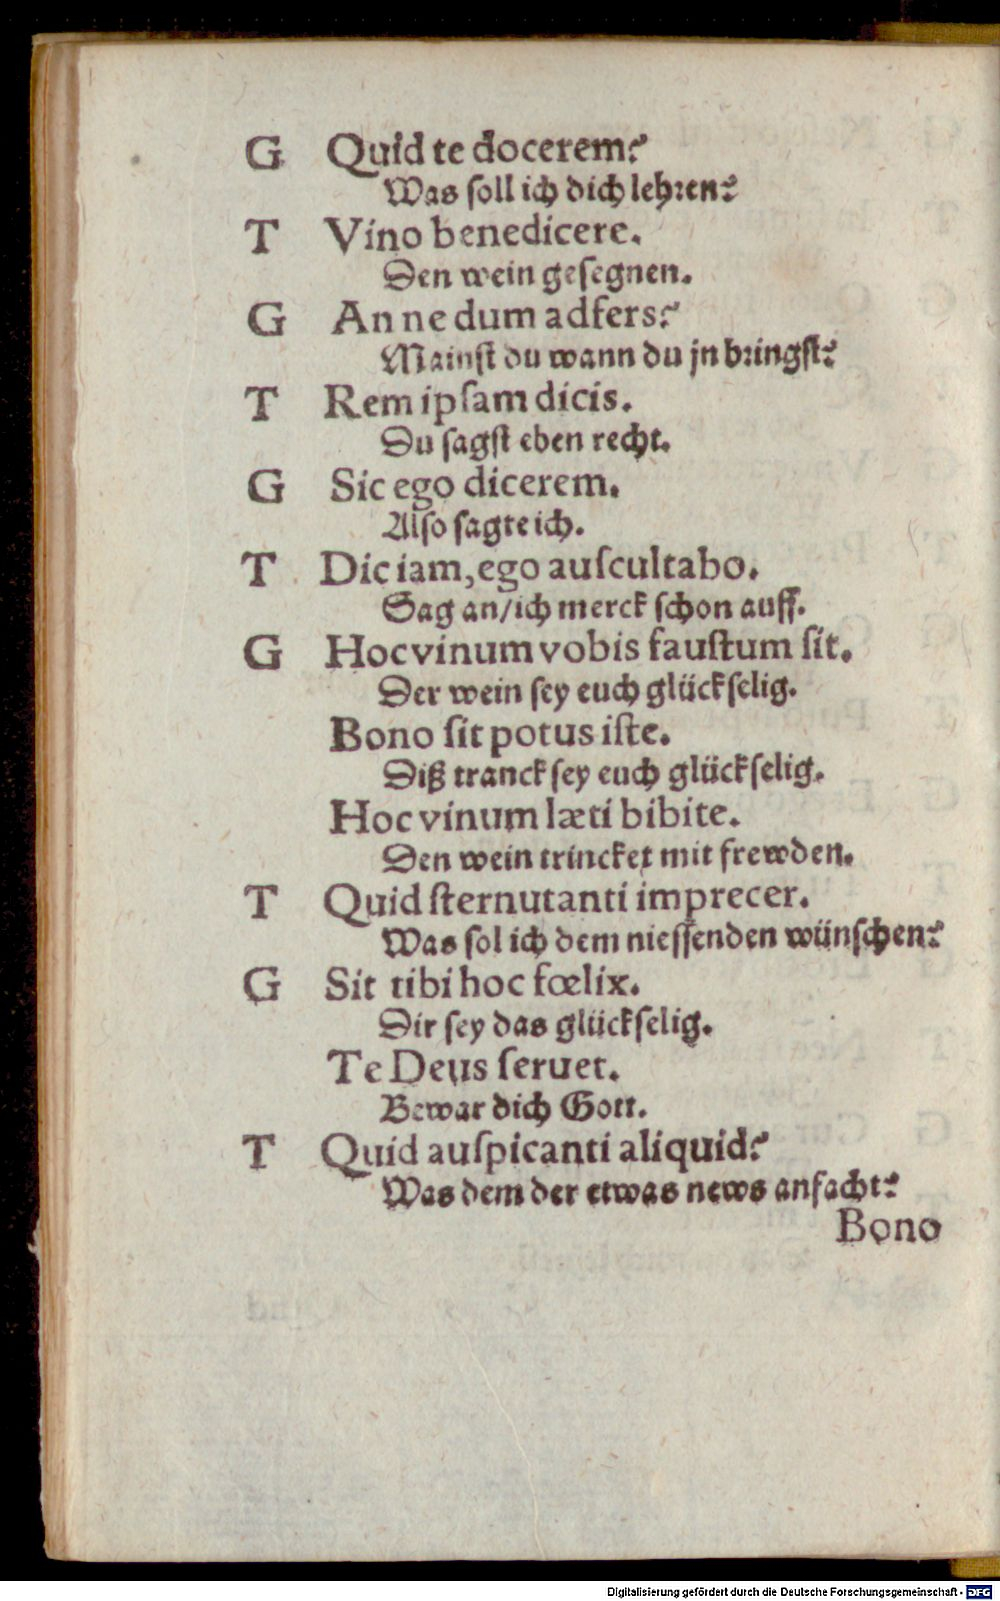 G Quid te docerem?
Was ſoll ich dich lehren?
T Vino benedicere.
Den wein geſegnen.
G An ne dum adfers?
Mainſt du wann du jn bringſt?
T Rem ipſam dicis.
Du ſagſt eben recht.
G Sic ego dicerem.
Alſo ſagte ich.
T Dic iam, ego auſcultabo.
Sag an/ich merck ſchon auff.
G Hoc vinum vobis fauſtum ſit.
Der wein ſey euch glückſelig.
Bono ſit potus iſte.
Diß tranck ſey euch glückſelig.
Hoc vinum læti bibite.
Den wein trincket mit frewden.
T Quid ſternutanti imprecer.
Was ſol ich dem nieſſenden wünſchen?
G Sit tibi hoc fœlix.
Dir ſey das glückſelig.
Te Deus ſeruet.
Bewar dich Gott.
T Quid auſpicanti aliquid?
Was dem der etwas news anfacht?
Bono
Digitalisierung gefördert durch die Deutsche Forschungsgemeinschaft - DFG